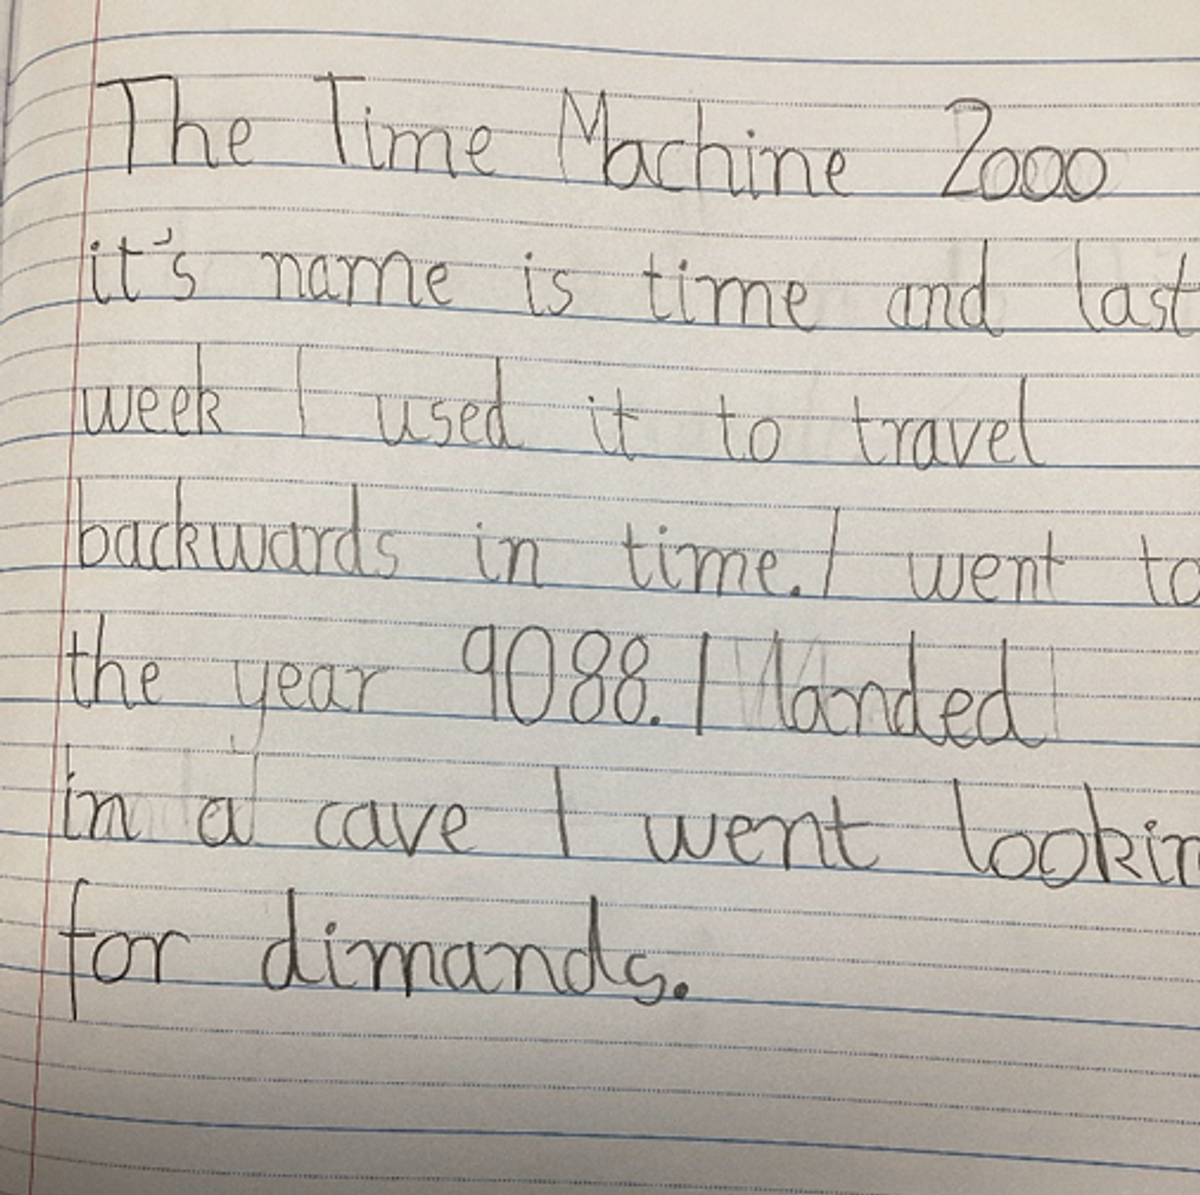 The Time Machine 2000
it's name is time and last
week I used it to travel
backwards in time. I went to
the year 9088. I landed
in a cave I went lookin
for dimands.